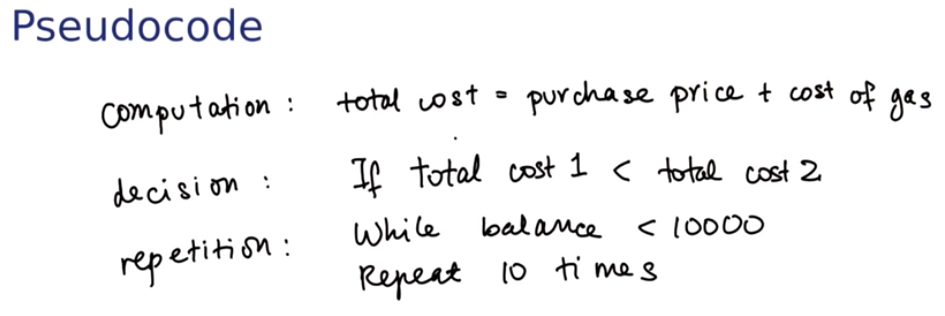 Pseudocode
computation : total cost = purchase price + cost of gas
decision : If total cost 1 < total cost 2
repetition : While balance < 10000
Repeat 10 times